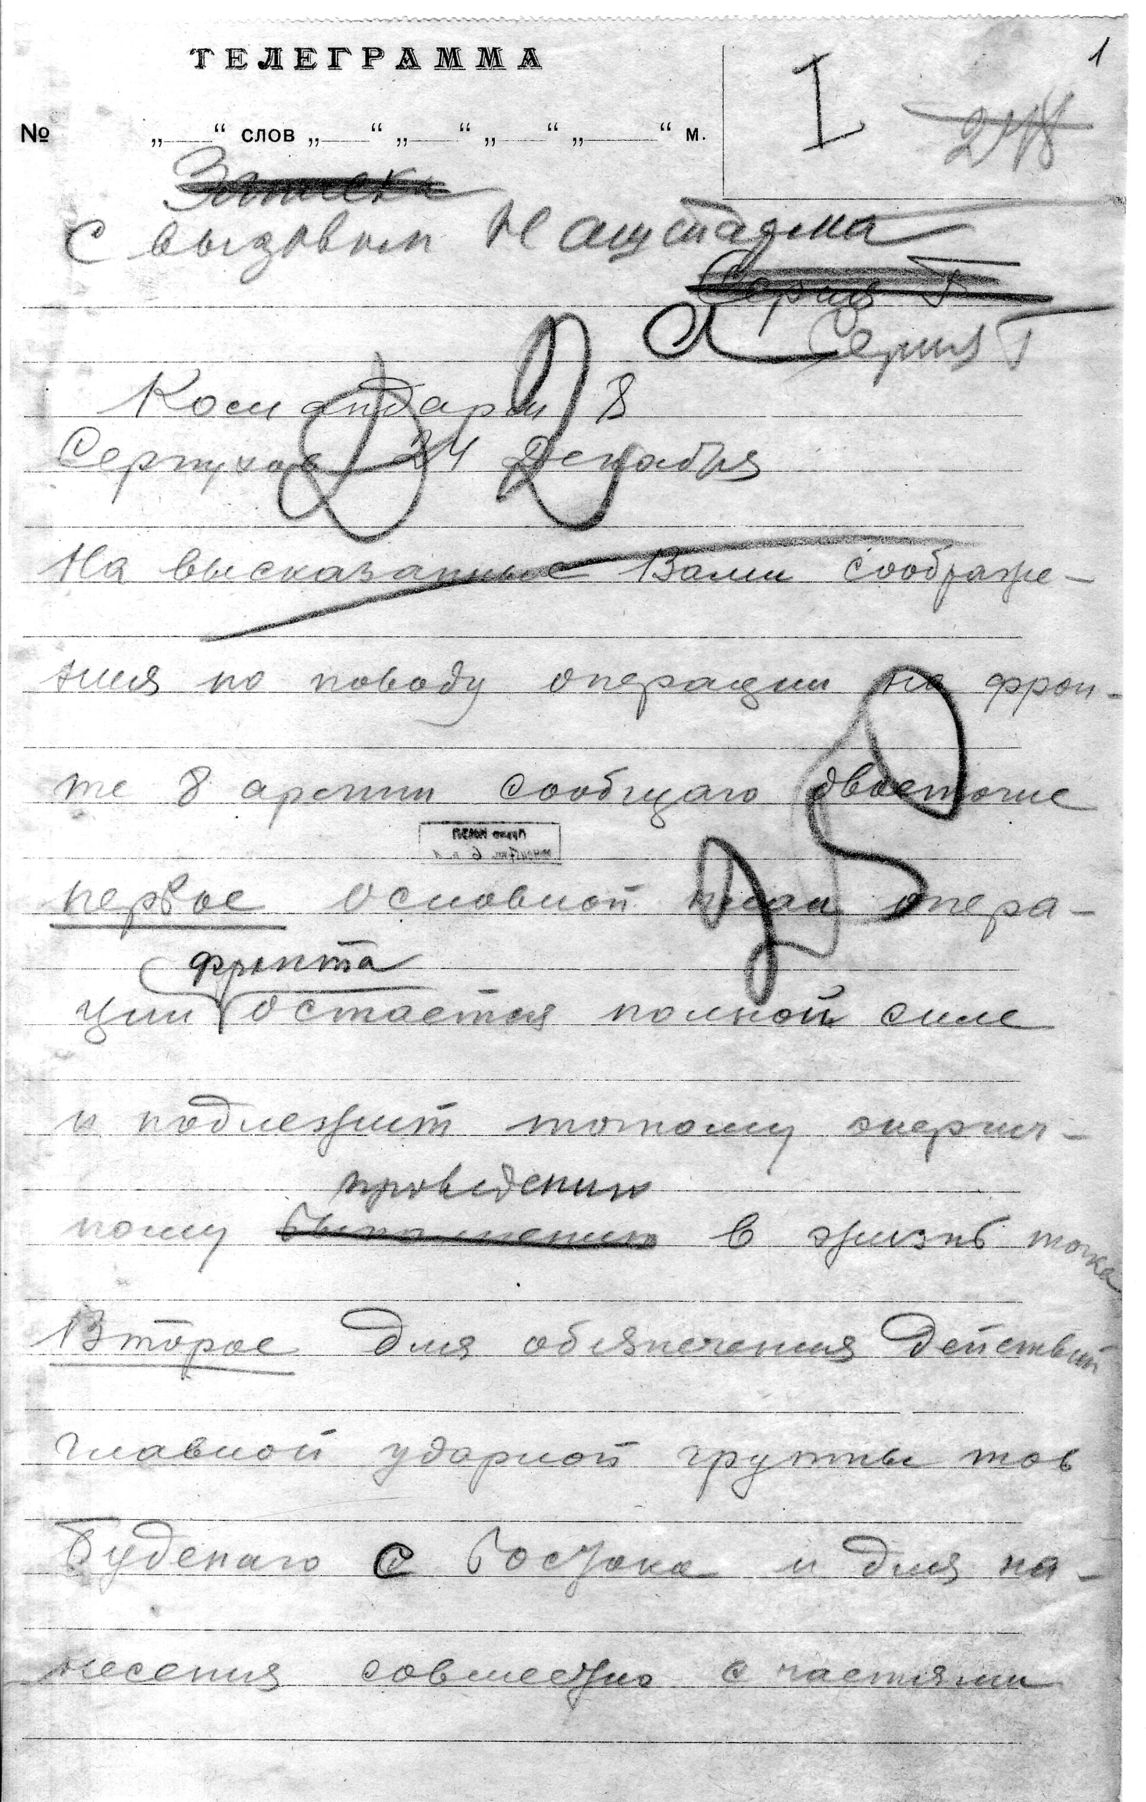 1
ТЕЛЕГРАММА
I
248
№ „ “ слов „ “ „ “ „ “ „ “ м.
Записка
С вызовом Наштадма
Серия Г
Серия Г
Командарм 8
Серпухов 24 Декабря
На высказанные Вами соображе-
ния по поводу операции на фрон-
те 8 армии сообщаю двоеточие
первое основной план опера-
фронта
ции остается полной силе
и подлежит точному энергич-
проведению
ному выполнению в жизнь точка
Второе для обезпечения действий
главной ударной группы тов
Буденаго с востока и для на-
несения совместно с частями